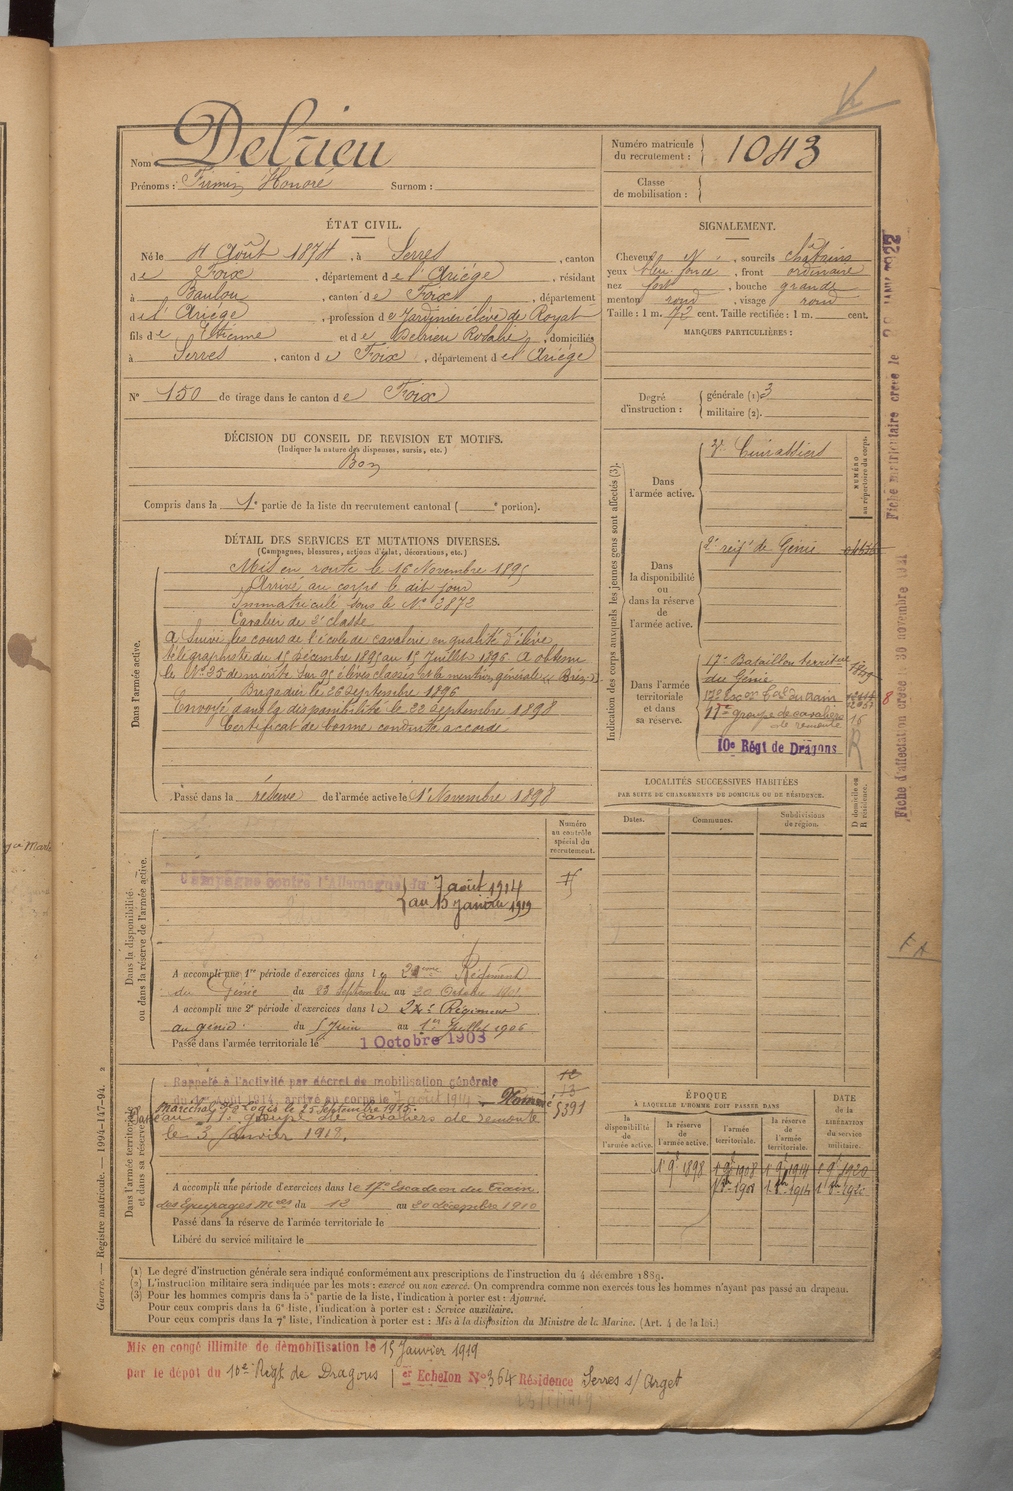 Nom Delrieu
Prénoms : Firmin Honoré Surnom :
Numéro matricule du recrutement : 1043
Classe de mobilisation :
ÉTAT CIVIL.
Né le 4 Août 1874, à Serres, canton
de Foix, département de l'Ariége, résidant
à Baulou, canton de Foix, département
de l'Ariége, profession de Jardinier élève de Royat
fils de Etienne et de Delrieu Rosalie, domiciliés
à Serres, canton de Foix, département de l'Ariége
N° 150 de tirage dans le canton de Foix
DÉCISION DU CONSEIL DE REVISION ET MOTIFS.
(Indiquer la nature des dispenses, sursis, etc.)
Bon
Compris dans la 1e partie de la liste du recrutement cantonal ( e portion).
DÉTAIL DES SERVICES ET MUTATIONS DIVERSES.
(Campagnes, blessures, actions d'éclat, décorations, etc.)
Dans l'armée active.
Mis en route le 16 Novembre 1895
Arrivé au corps le dit jour
Immatriculé sous le N° 3872
Cavalier de 2e classe
A Suivi les cours de l'école de cavalerie en qualité d'élève
télégraphiste du 15 Décembre 1895 au 15 Juillet 1896 A obtenu
le N° 35 de mérite sur 95 élèves classés et la mention générale «
Brigadier le 26 Septembre 1896
Envoyé dans la disponibilité le 22 Septembre 1898
Certificat de bonne conduite accordé
Passé dans la réserve de l'armée active le 1er Novembre 1898
Dans la disponibilité ou dans la réserve de l'armée active.
Numéro au contrôle spécial du recrutement.
Campagne contre l'Allemagne du 7 août 1914
au 15 Janvier 1919
A accompli une 1re période d'exercices dans le 2eme Régiment
du Génie du 23 Septembre au 20 Octobre
A accompli une 2e période d'exercices dans le 2e Régiment
du génie du 5 Juin au 1er Juillet 1906
Passé dans l'armée territoriale le 1 Octobre 1908
Dans l'armée territoriale et dans sa réserve.
Rappelé à l'activité par décret de mobilisation générale
du 1er Août 1914, arrivé au corps le 7 août 1914 Nommé
Maréchal des Logis le 25 Septembre 1915.
Passé au 17e groupe de cavaliers de remonte
le 3 Janvier 1918.
12
13
5391
A accompli une période d'exercices dans le 17e Escadron du Train
des Equipages Mres du 13 au 20 décembre 1910
Passé dans la réserve de l'armée territoriale le
Libéré du service militaire le
SIGNALEMENT.
Cheveux N, sourcils châtains
yeux bleu foncé, front ordinaire
nez fort, bouche grande
menton rond, visage rond
Taille : 1 m. 72 cent. Taille rectifiée : 1 m. cent.
MARQUES PARTICULIÈRES :
Degré d'instruction : générale (1) 3
militaire (2).
Indication des corps auxquels les jeunes gens sont affectés (3).
NUMÉRO au répertoire du corps.
Dans l'armée active. 2e Cuirassiers
Dans la disponibilité ou dans la réserve de l'armée active. 2e régt de Génie
Dans l'armée territoriale et dans sa réserve.
17e Bataillon territorial
du Génie
17e Esc.on T.al du train
17e groupe de cavaliers
de remonte
16
10e Régt de Dragons
R
8
LOCALITÉS SUCCESSIVES HABITÉES
PAR SUITE DE CHANGEMENTS DE DOMICILE OU DE RÉSIDENCE.
D domicile ou R résidence.
Dates. Communes. Subdivisions de région.
ÉPOQUE
À LAQUELLE L'HOMME DOIT PASSER DANS
la disponibilité de l'armée active. la réserve de l'armée active. l'armée territoriale. la réserve de l'armée territoriale. DATE de la LIBÉRATION du service militaire.
1er 9bre 1898 1er 9bre 1908 1er 9bre 1914 1er 9bre 1920
1er 8bre 1908 1er 8bre 1914 1er 8bre 1920
(1) Le degré d'instruction générale sera indiqué conformément aux prescriptions de l'instruction du 4 décembre 1889.
(2) L'instruction militaire sera indiquée par les mots : exercé ou non exercé. On comprendra comme non exercés tous les hommes n'ayant pas passé au drapeau.
(3) Pour les hommes compris dans la 5e partie de la liste, l'indication à porter est : Ajourné.
Pour ceux compris dans la 6e liste, l'indication à porter est : Service auxiliaire.
Pour ceux compris dans la 7e liste, l'indication à porter est : Mis à la disposition du Ministre de la Marine. (Art. 4 de la loi.)
Mis en congé illimité de démobilisation le 15 Janvier 1919
par le dépôt du 10e Régt de Dragons 1er Echelon N° 364 Résidence Serres s/ Arget
Guerre. — Registre matricule. — 1994-147-94. 2
Fiche matriculaire créée le
Fiche d'affectation créée le 30 novembre